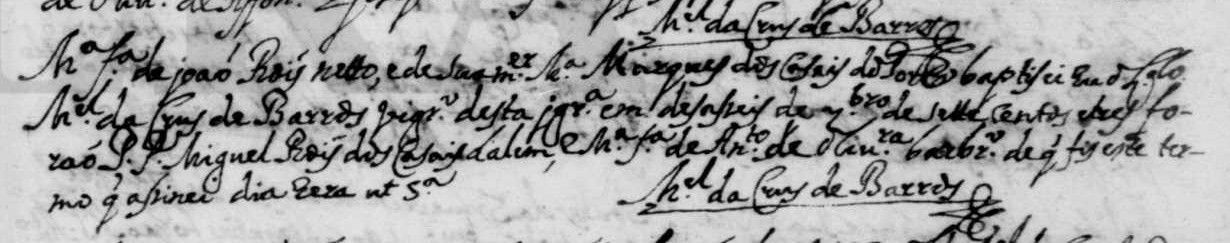 M.el da Crus de Barros
M.a f.a de joaõ Roiz netto, e de sua m.er M.a Marques dos Casais do baptisei eu o L.do
M.el da Crus de Barros vigr.o desta jgr.a em desasseis de 9.bro de sette centos e tres fo-
raõ P. P. Miguel Roiz dos Casais dalem, e M.a f.a de An.to de Oliu.ra barbr.o de q̃ fis este ter-
mo q̃ asinei dia e era ut s.a
M.el da Crus de Barros